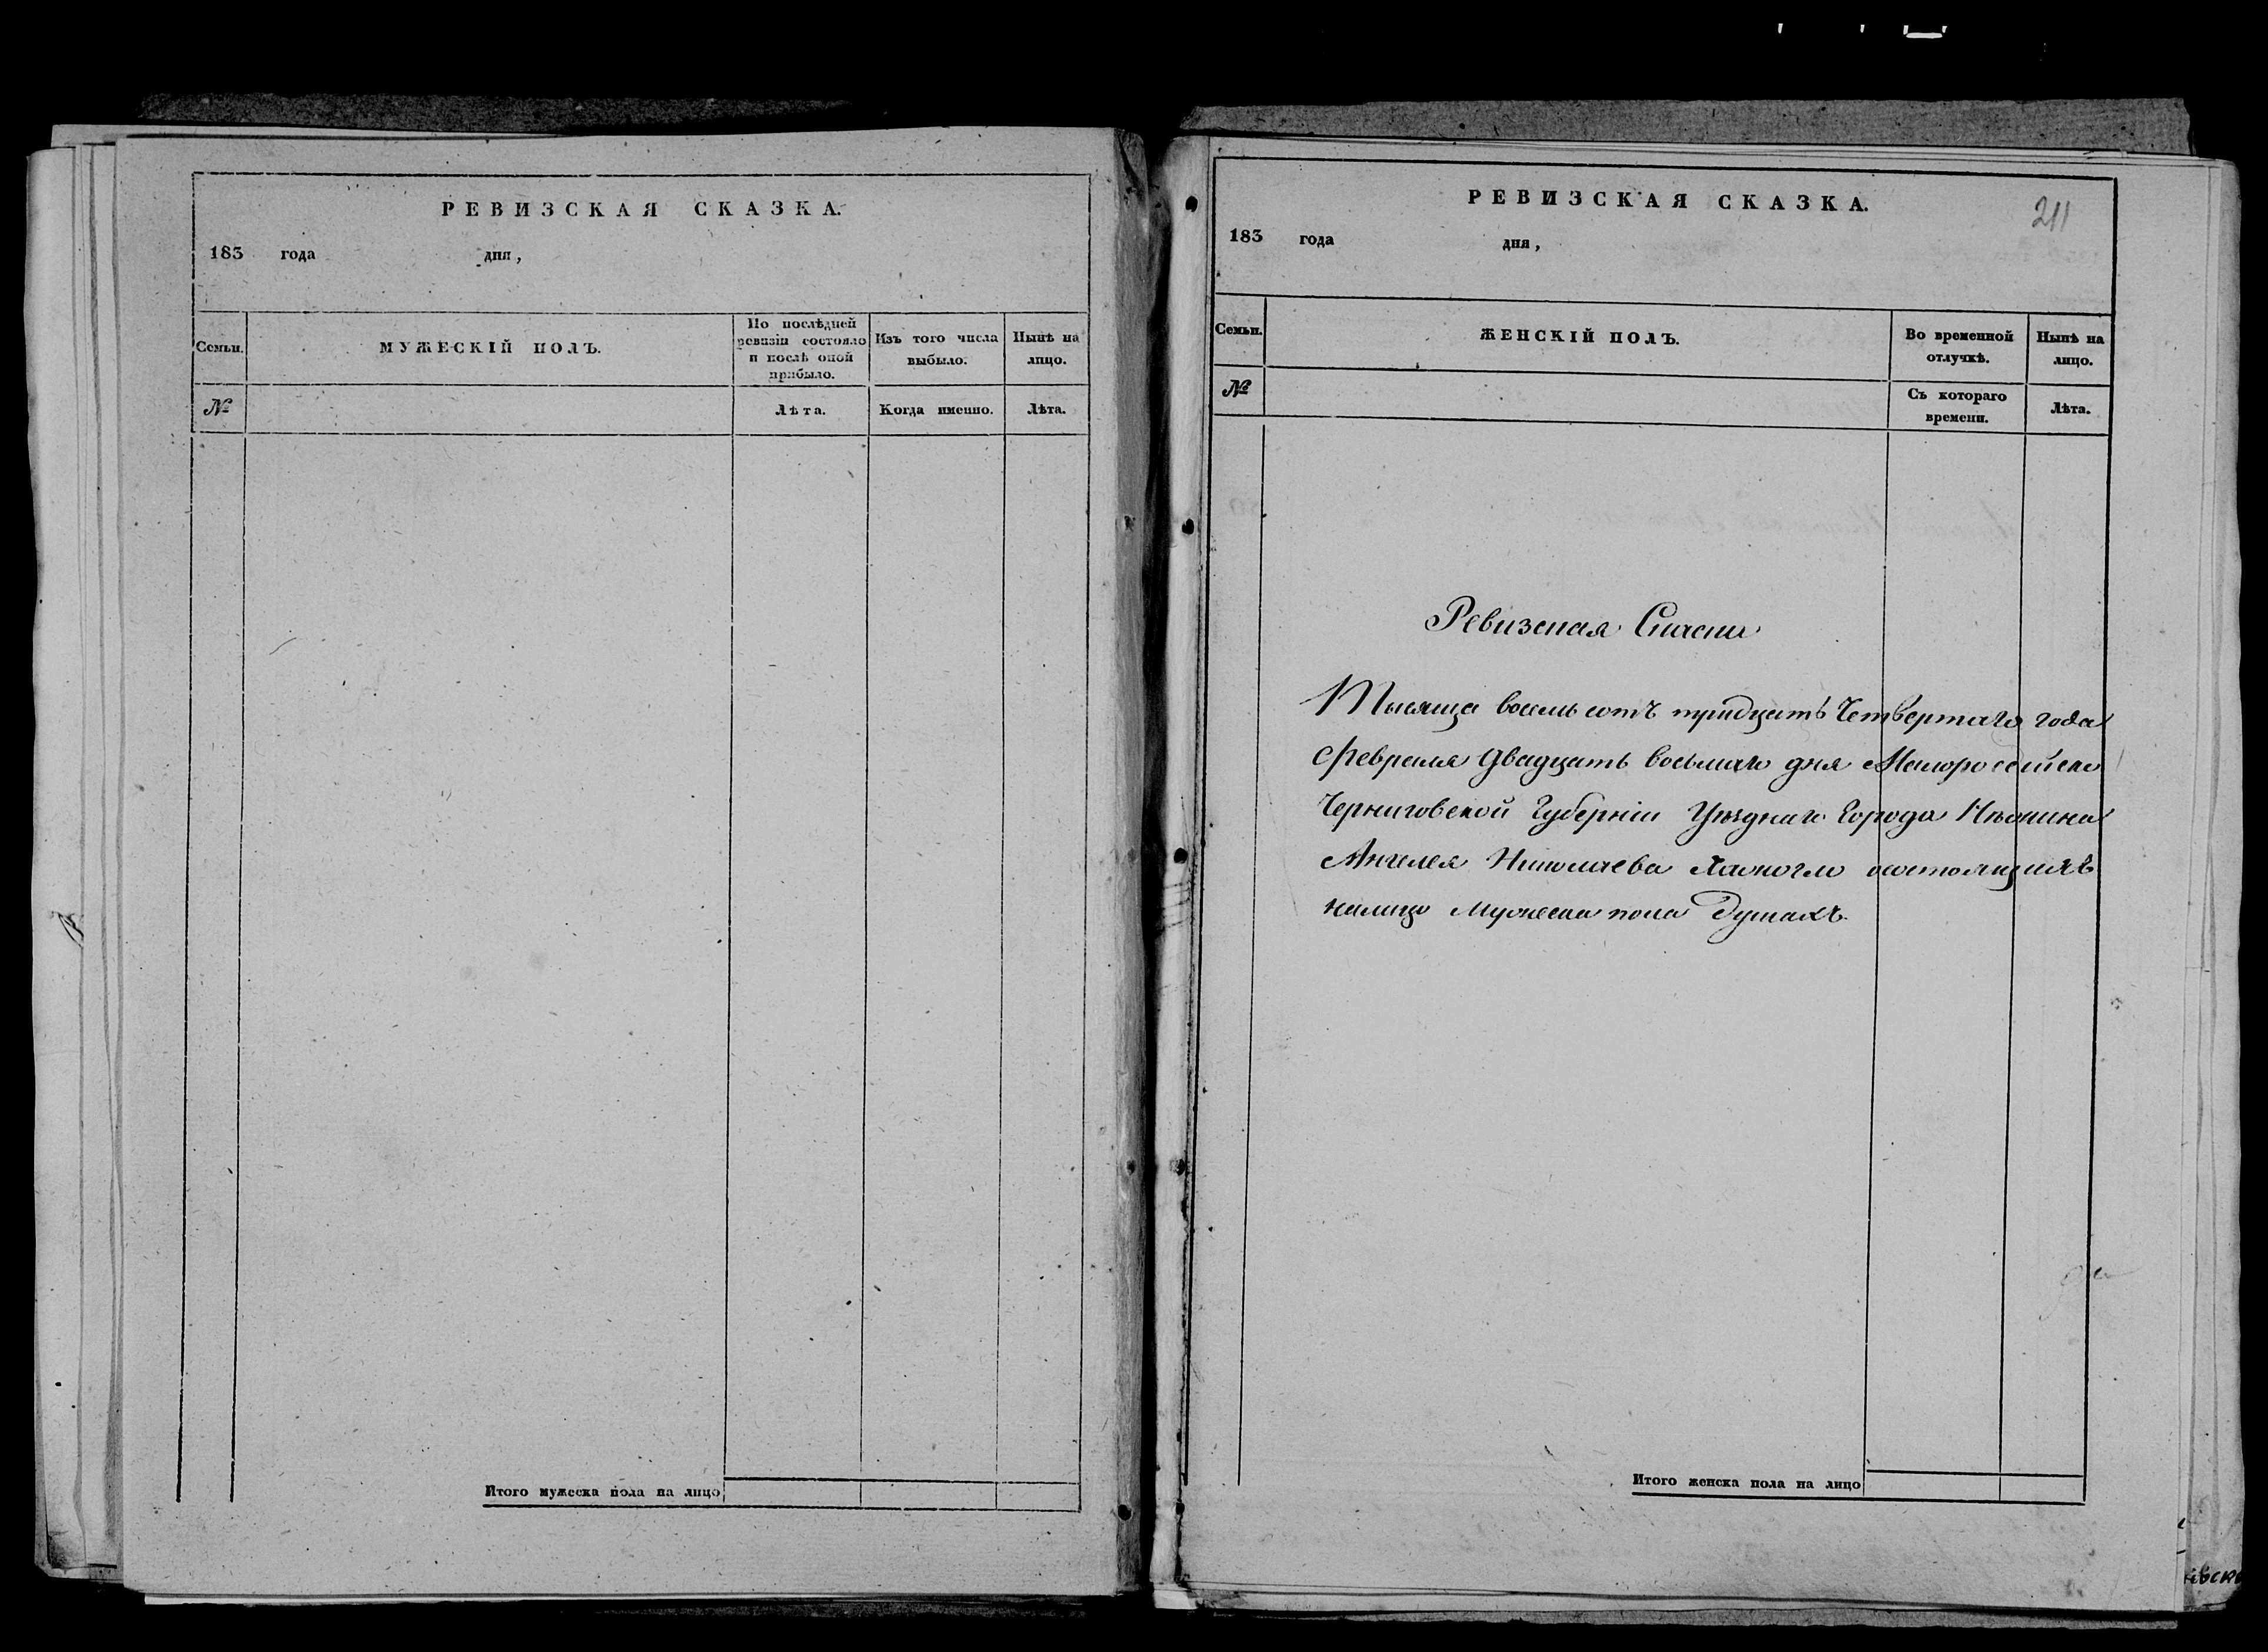 РЕВИЗСКАЯ СКАЗКА.
183 года дня,
Семьи.
МУЖЕСКІЙ ПОЛЪ.
По послѣдней
ревизіи состояло
и послѣ оной
прибыло.
Изъ того числа
выбыло.
Нынѣ на
лицо.
№
Лѣта.
Когда именно.
Лѣта.
Итого мужеска пола на лицо
РЕВИЗСКАЯ СКАЗКА.
211
183 года дня,
Семьи.
ЖЕНСКІЙ ПОЛЪ.
Во временной
отлучкѣ.
Нынѣ на
лицо.
№
Съ котораго
времени.
Лѣта.
Ревизская Сказка
Тысяща восемь сотъ тридцать Четвертаго года
Февраля двадцать восьмаго дня
Черниговской Губерніи Уѣзднаго Города Нѣжина
Николаева состоящихъ
налицо Мужеска пола Душахъ.
Итого женска пола на лицо